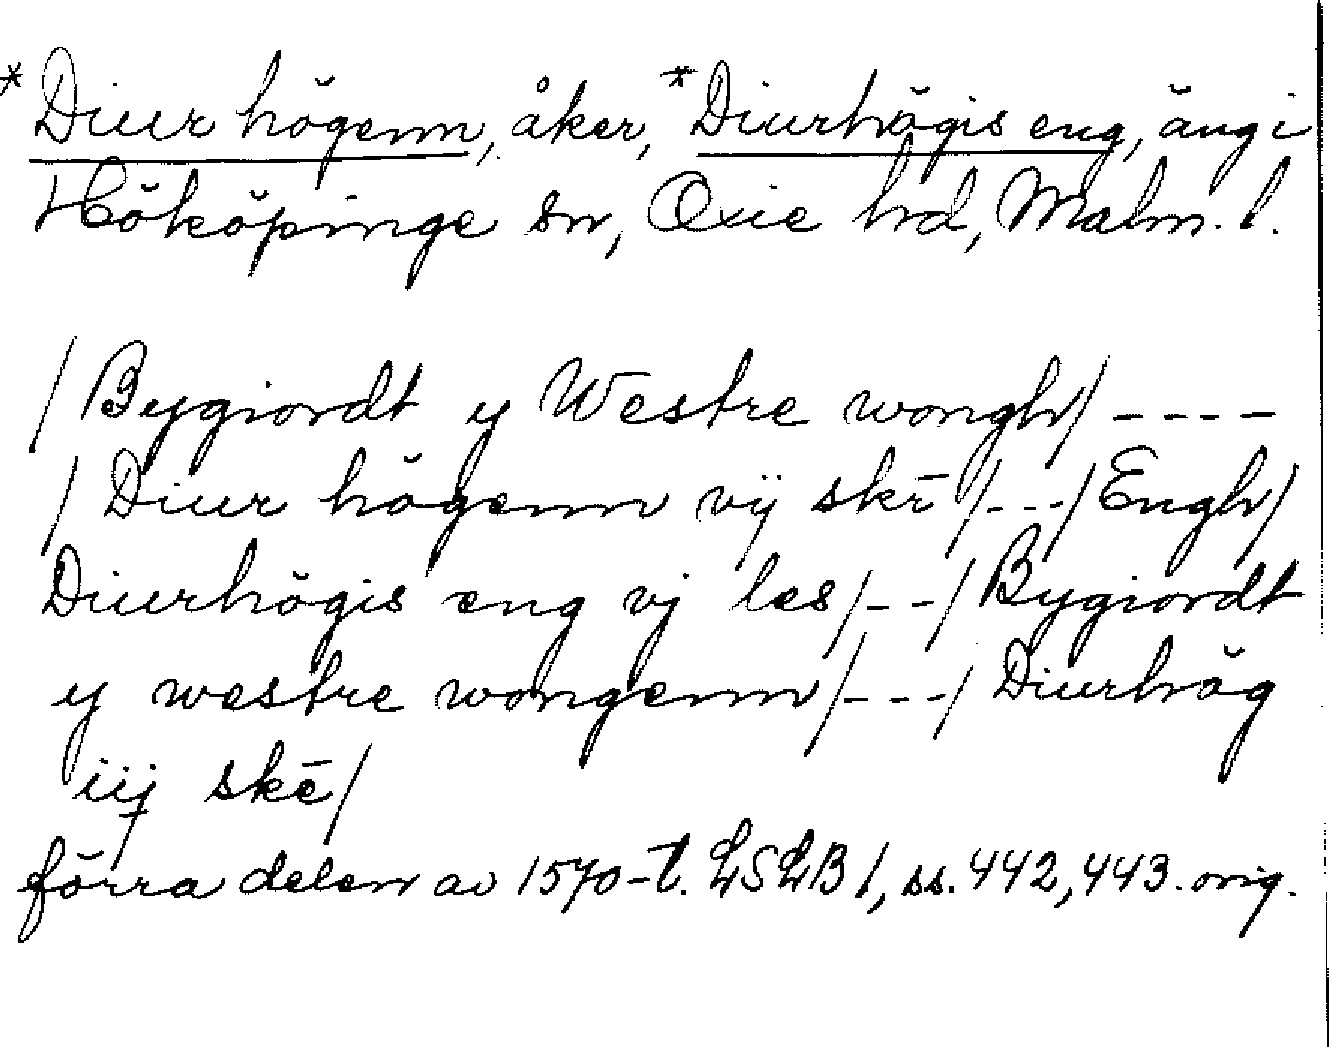 *Diur högenn, åker, *Diurhögis eng, äng i
Hököpinge sn, Oxie hd, Malm. l.
/Bygiordt y Westre wongh/ ----
/Diur högenn vij skē/---/Engh/
Diurhögis eng vj les/--/Bygiordt
y westre wongenn/---/Diurhög
iij skē/
förra delen av 1570-t. LSLB 1, ss. 442, 443. orig.